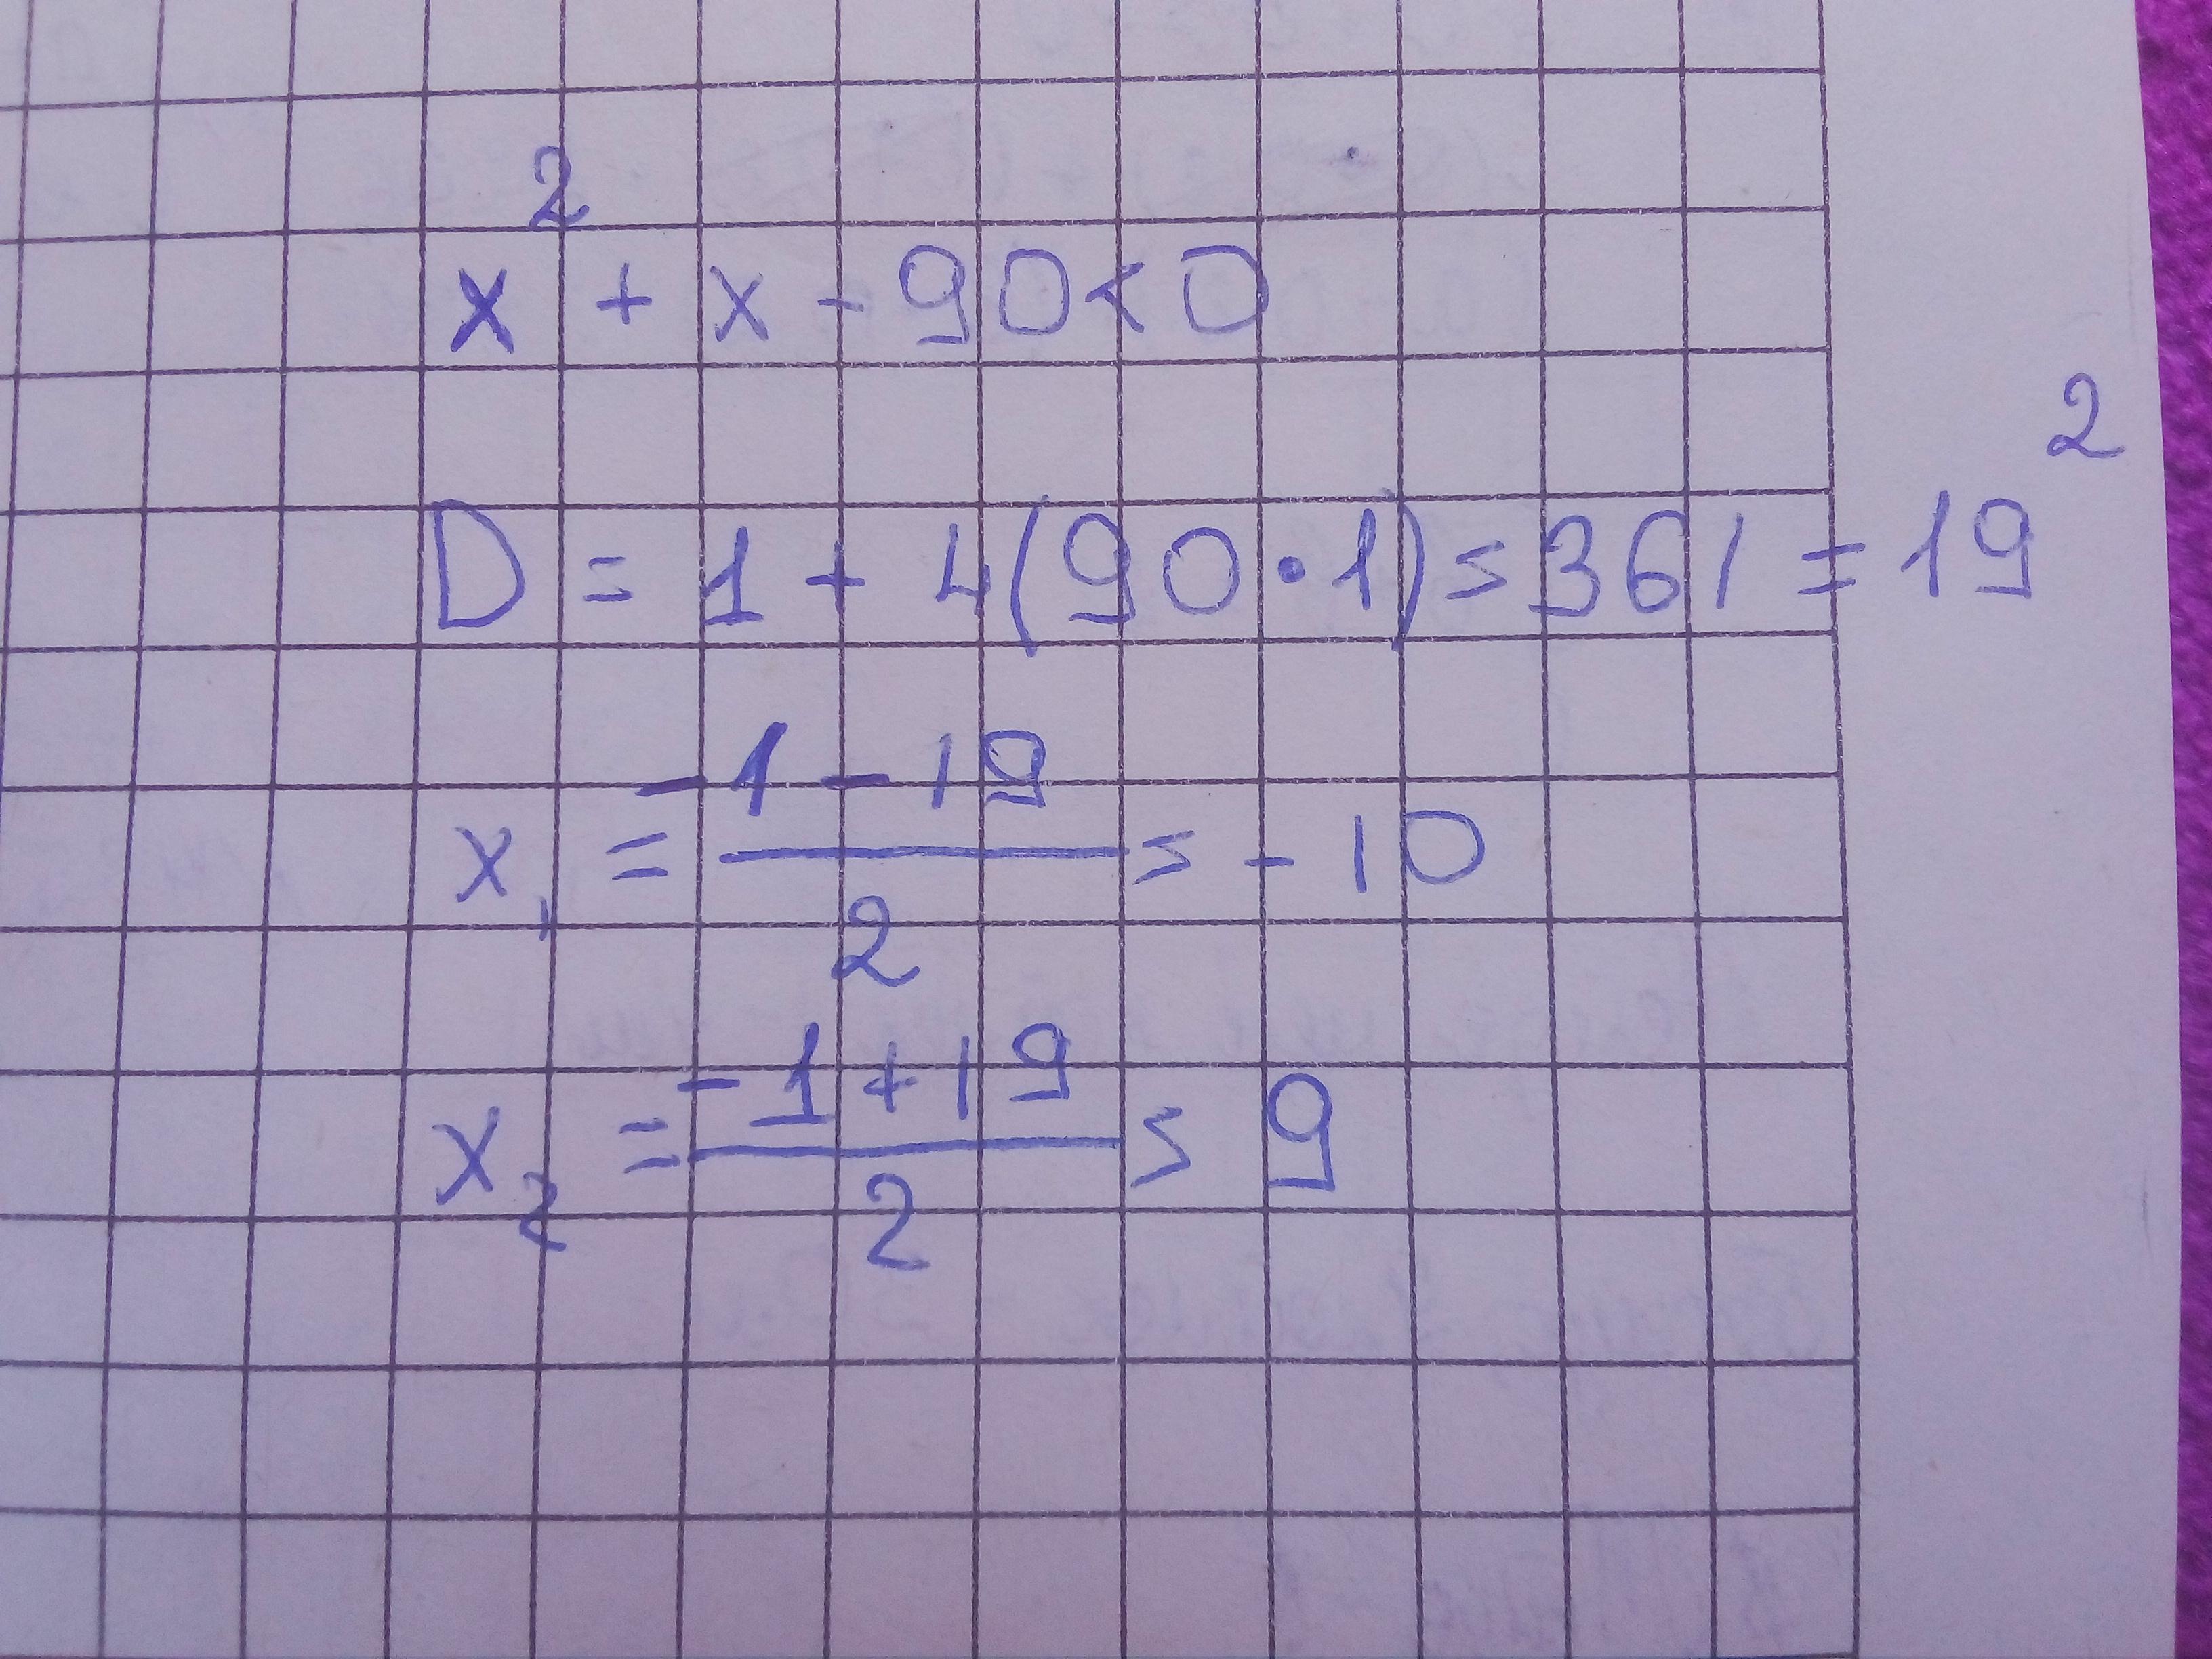 x² + x - 90 < 0
D = 1 + 4(90·1) = 361 = 19²
x₁ = (-1 - 19)/2 = -10
x₂ = (-1 + 19)/2 = 9